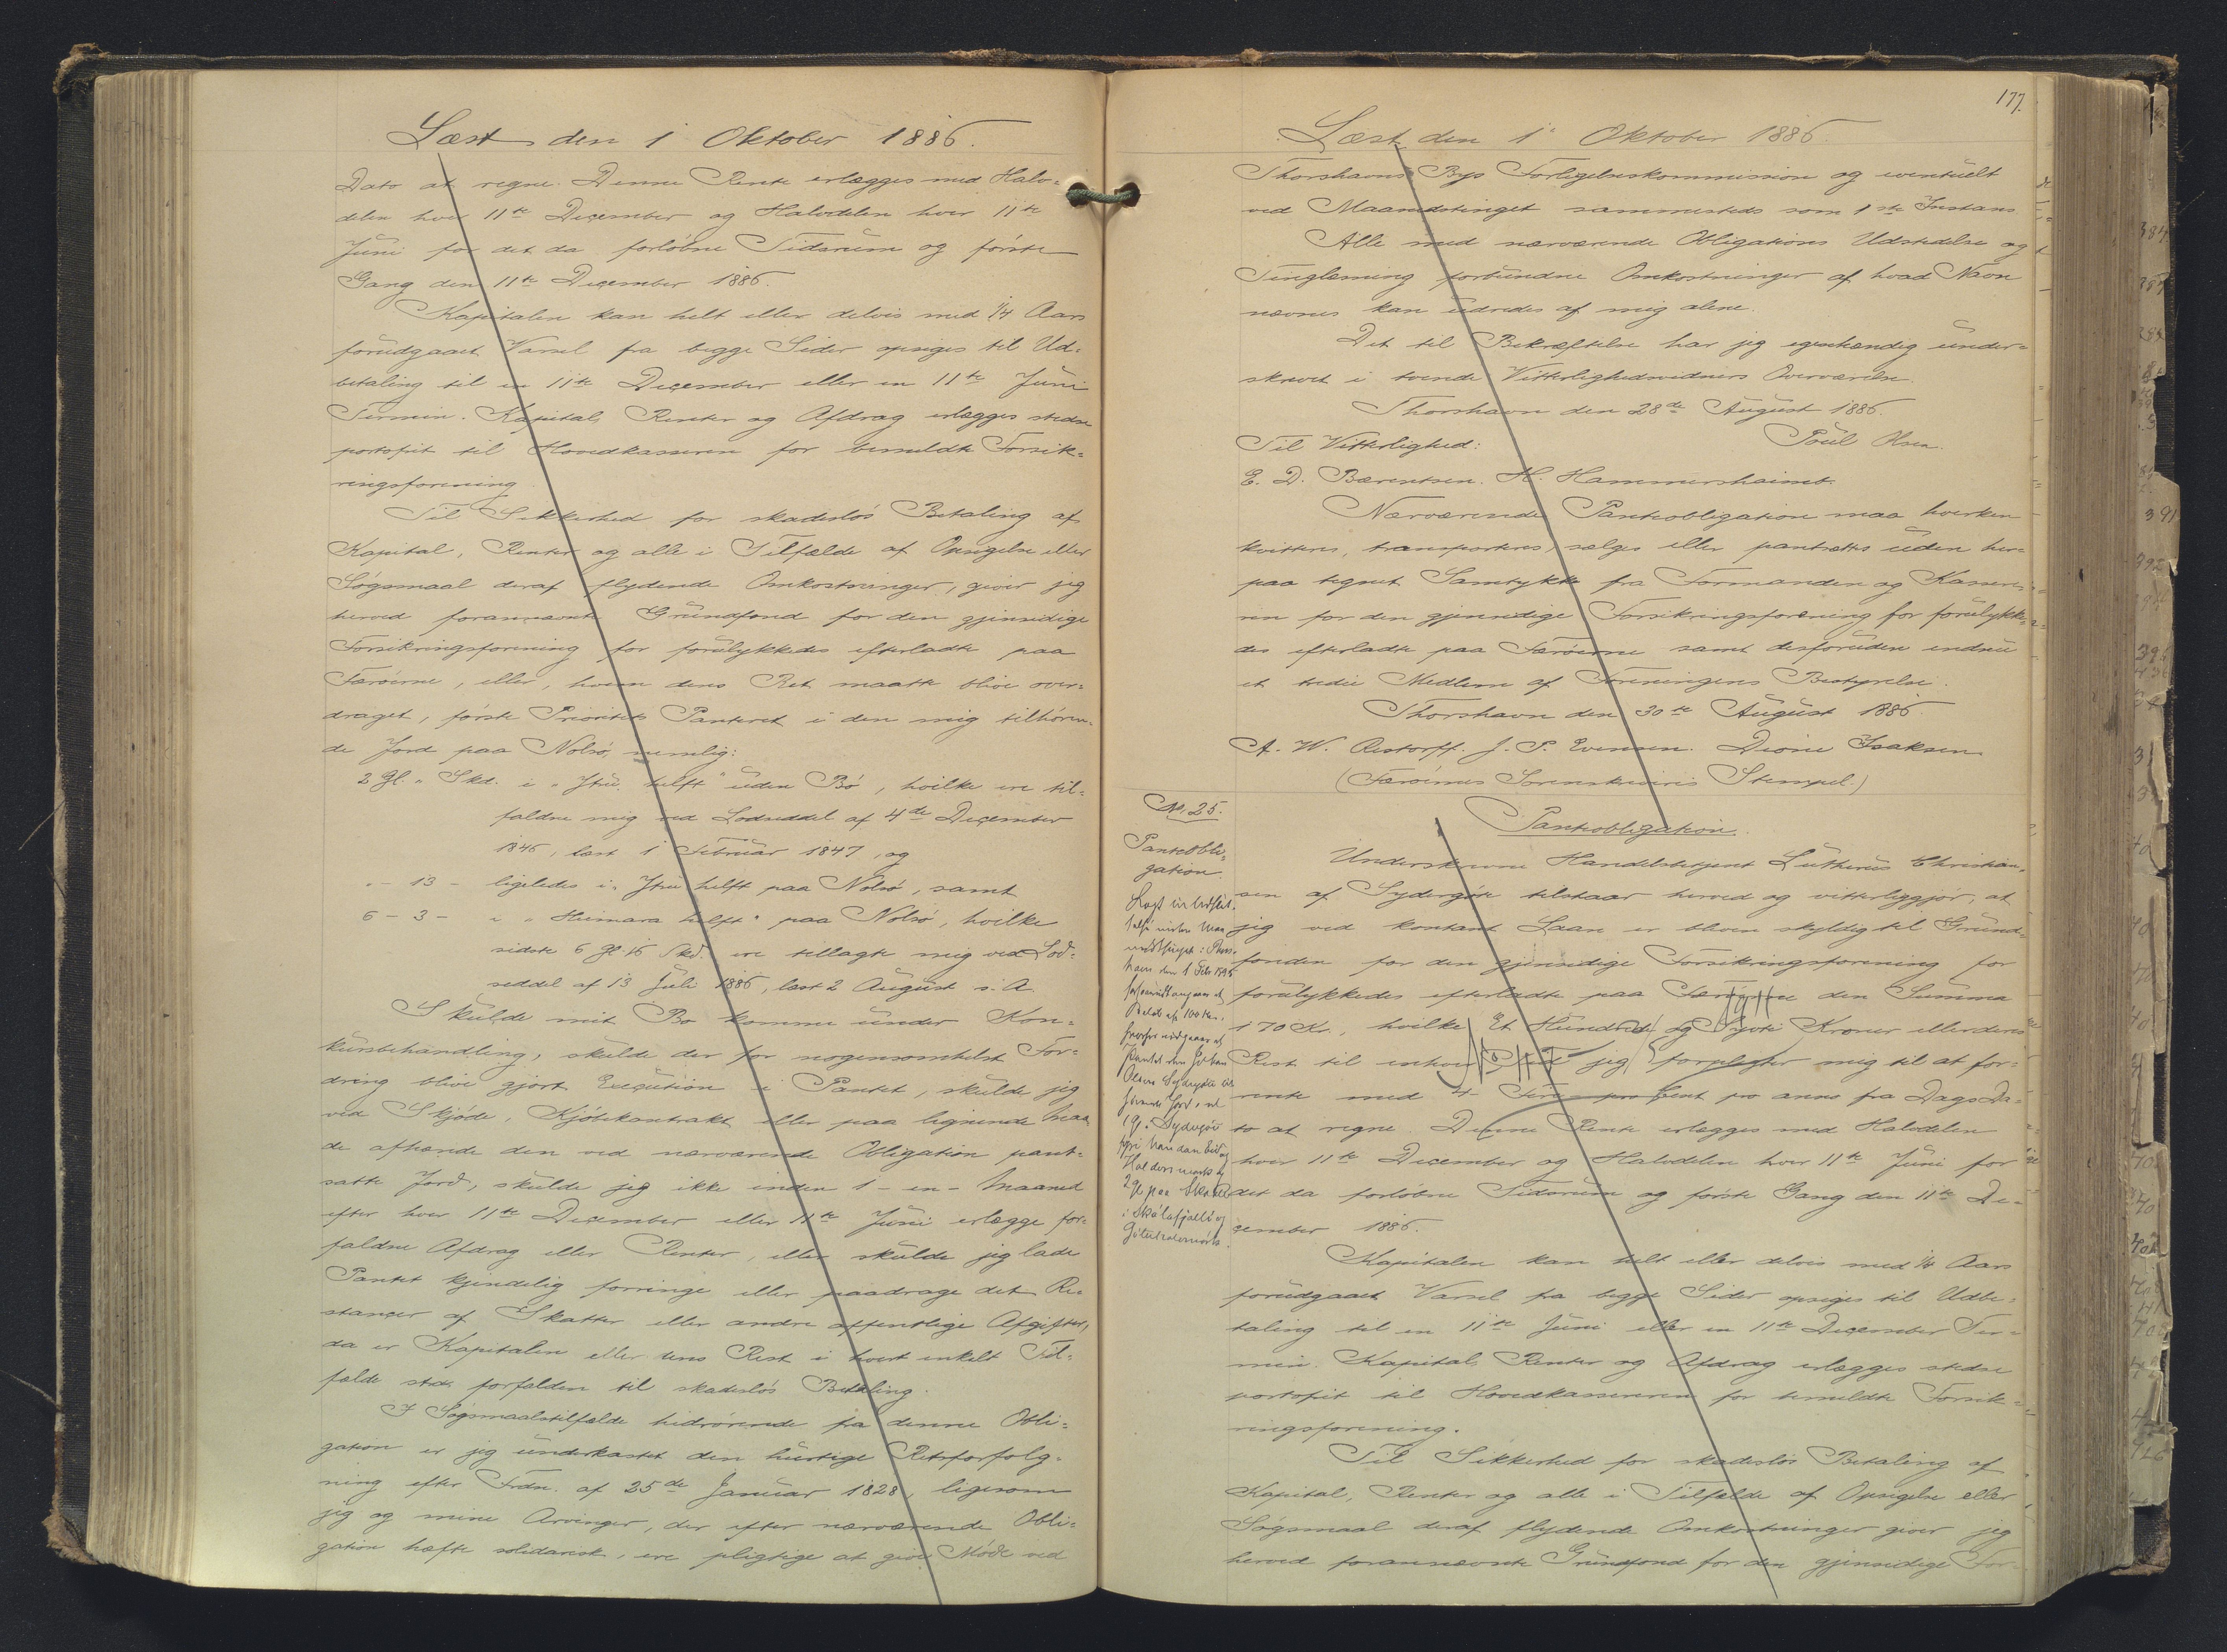 Læst den 1 Oktober 1886.
Dato at regne. Denne Rente erlægges med Halv=
delen hver 11te December og Halvdelen hver 11te
Juni for det da forløbne Tidsrum og første
Gang den 11te December 1886.
Kapitalen kan helt eller delvis med 1/4 Aars
forudgaaet Varsel fra begge Sider opsiges til Ud=
betaling til en 11te December eller en 11te Juni
Termin. Kapital, Renter og Afdrag erlægges stedse
portofrit til Hovedkassereren for bemeldte Forsik=
ringsforening.
Til Sikkerhed for skadesløs Betaling af
Kapital, Renter og alle i Tilfælde af Opsigelse eller
Søgsmaal deraf flydende Omkostninger, giver jeg
herved forannævnte Grundfond for den gjensidige
Forsikringsforening for forulykkedes efterladte paa
Færøerne, eller, hvem dens Ret maatte blive over=
draget, første Prioritets Panteret i den mig tilhøren=
de Jord paa Nolsø, nemlig:
2 Gl. " Skd. i " Ytru helft " uden Bø, hvilke ere til=
faldne mig ved Lodseddel af 4de December
1846, læst 1 Februar 1847, og
" - 13 - ligeledes i " Ytru helft paa Nolsø, samt
6 - 3 - i " Heimara helft " paa Nolsø, hvilke
sidste 6 Gl. 16 Skd. ere tillagte mig ved Lod=
seddel af 13 Juli 1886, læst 2 August s. A.
Skulde mit Bo komme under Kon=
kursbehandling, skulde der for nogensomhelst For=
dring blive gjort Execution i Pantet, skulde jeg
ved Skjøde, Kjøbekontrakt eller paa lignende Maa=
de afhænde den ved nærværende Obligation pant=
satte Jord, skulde jeg ikke inden 1 - en - Maaned
efter hver 11te December eller 11te Juni erlægge for=
faldne Afdrag eller Renter, eller skulde jeg lade
Pantet kjendelig forringe eller paadrage det Re=
stancer af Skatter eller andre offentlige Afgifter,
da er Kapitalen eller dens Rest i hvert enkelt Til=
fælde strax forfalden til skadesløs Betaling.
I Søgsmaalstilfælde hidrørende fra denne Obli=
gation er jeg underkastet den hurtige Retsforfølg=
ning efter Frdn. af 25de Januar 1828, ligesom
jeg og mine Arvinger, der efter nærværende Obli=
gation hæfte solidarisk, ere pligtige at give Møde ved
177.
Læst den 1' Oktober 1886
Thorshavns Bys Forligelseskommission og eventuelt
ved Maanedstinget sammesteds som 1ste Instans.
Alle med nærværende Obligations Udstedelse og
Tinglæsning forbundne Omkostninger af hvad Navn
nævnes kan udredes af mig alene.
Det til Bekræftelse har jeg egenhændig under=
skrevet i tvende Vitterlighedsvidners Overværelse.
Thorshavn den 28de August 1886.
Poul Olsen.
Til Vitterlighed:
E. D. Bærentsen. H. Hammershaimb.
Nærværende Panteobligation maa hverken
kvitteres, transporteres, sælges eller pantsættes uden her=
paa tegnet Samtykke fra Formanden og Kassere=
ren for den gjensidige Forsikringsforening for forulykke=
des efterladte paa Færøerne samt desforuden endnu
et tredie Medlem af Foreningens Bestyrelse.
Thorshavn den 30te August 1886.
A. W. Restorff. J. P. Evensen. Dione Isaksen
(Færøernes Sorenskriveris Stempel.)
No. 25.
Panteobli=
gation.
Panteobligation.
Underskrevne Handelsbetjent Lutherus Christian=
sen af Sydergøte tilstaar herved og vitterliggjør, at
jeg ved kontant Laan er bleven skyldig til Grund=
fonden for den gjensidige Forsikringsforening for
forulykkedes efterladte paa Færøerne den Summa
170 Kr., hvilke Et Hundrede og Syvti Kroner eller deres
Rest til enhver Tid jeg forpligter mig til at for=
rente med 4 - Fire - pro Cent pro anno fra Dags Da=
to at regne. Denne Rente erlægges med Halvdelen
hver 11te December og Halvdelen hver 11te Juni for
det da forløbne Tidsrum og første Gang den 11te De=
cember 1886.
Kapitalen kan helt eller delvis med 1/4 Aars
forudgaaet Varsel fra begge Sider opsiges til Udbe=
taling til en 11te Juni eller en 11te December Ter=
min. Kapital, Renter og Afdrag erlægges stedse
portofrit til Hovedkassereren for bemeldte Forsik=
ringsforening.
Til Sikkerhed for skadesløs Betaling af
Kapital, Renter og alle i Tilfælde af Opsigelse eller
Søgsmaal deraf flydende Omkostninger giver jeg
herved forannævnte Grundfond for den gjensidige For=